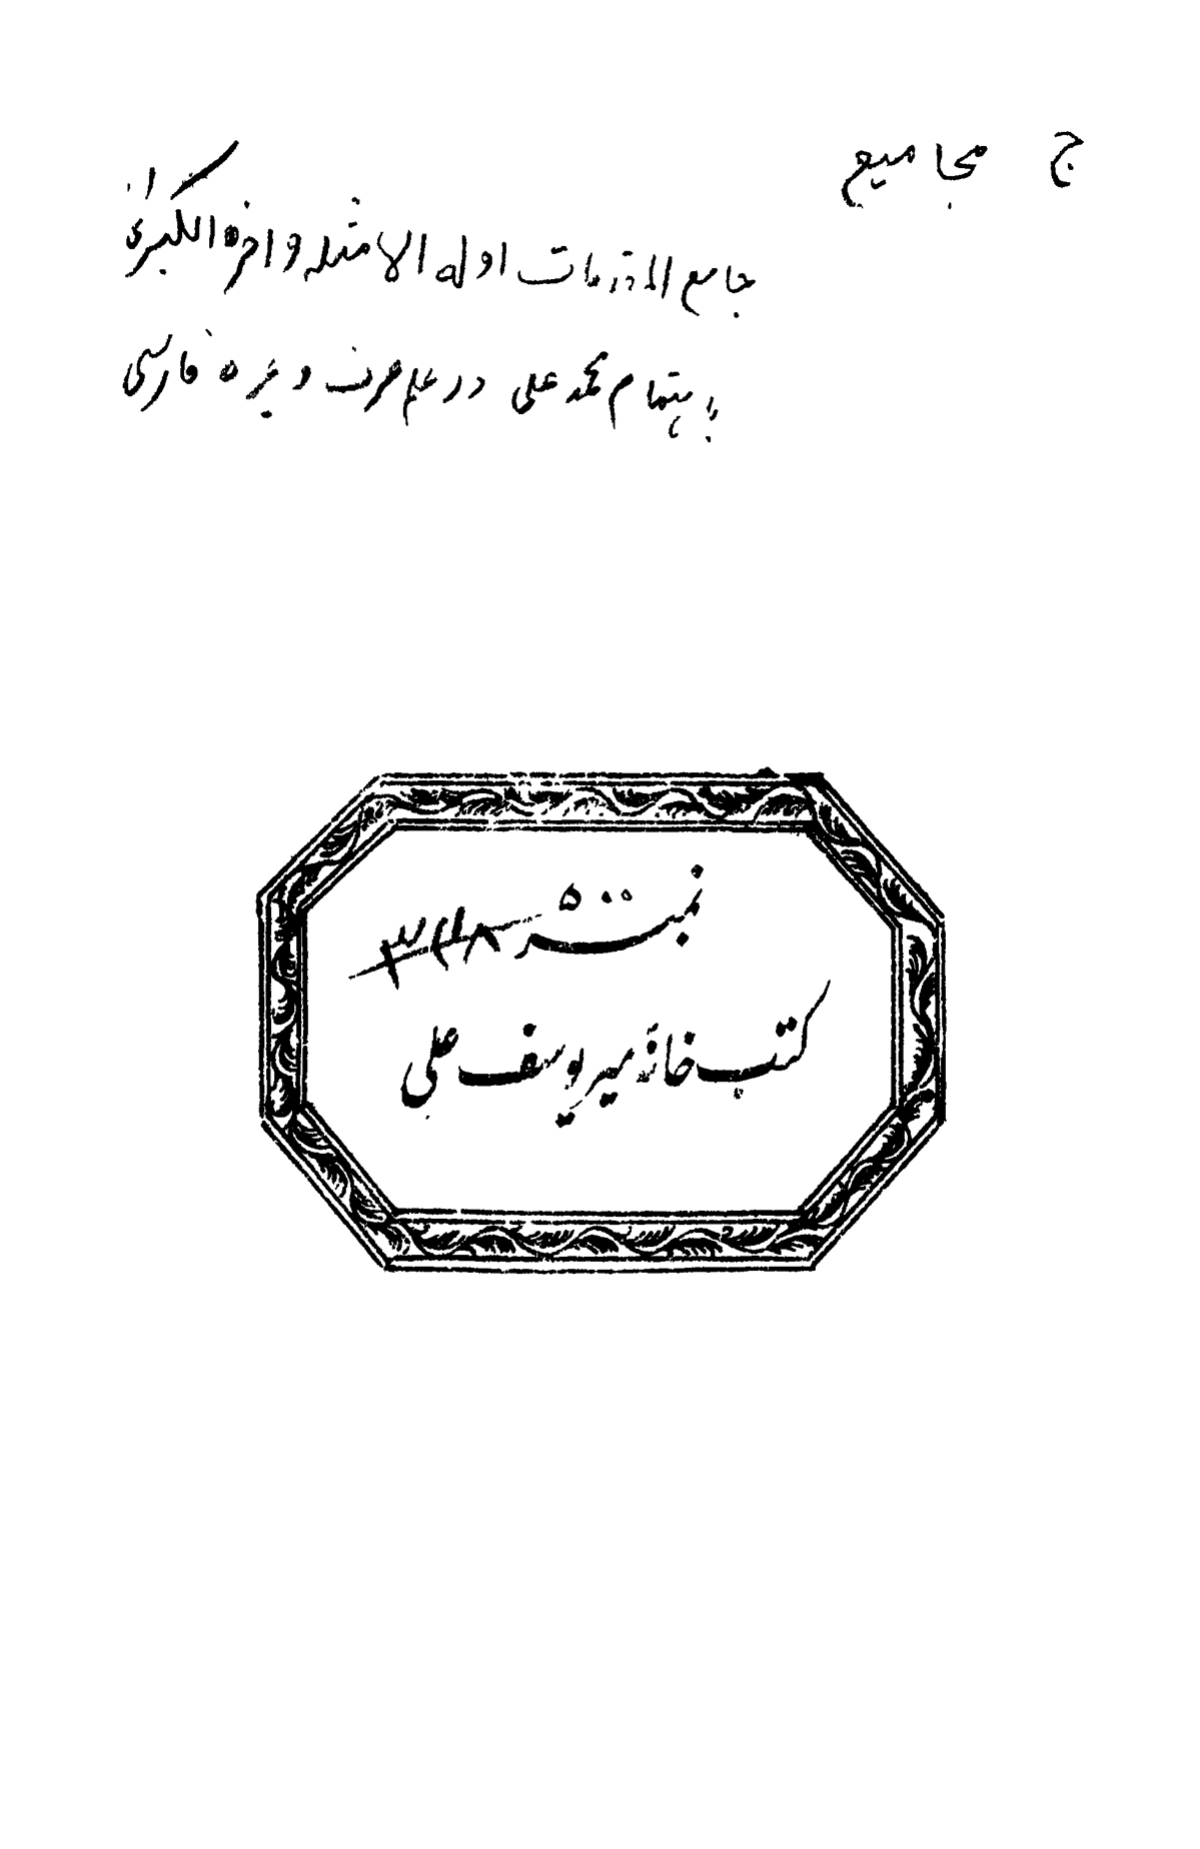 ج مجامیع
جامع المقدمات اوله الامثله واخره الکبری
باهتمام محمد علی در علم صرف و غیره فارسی
نمبر ۵۰۰
کتب خانۀ میر یوسف علی